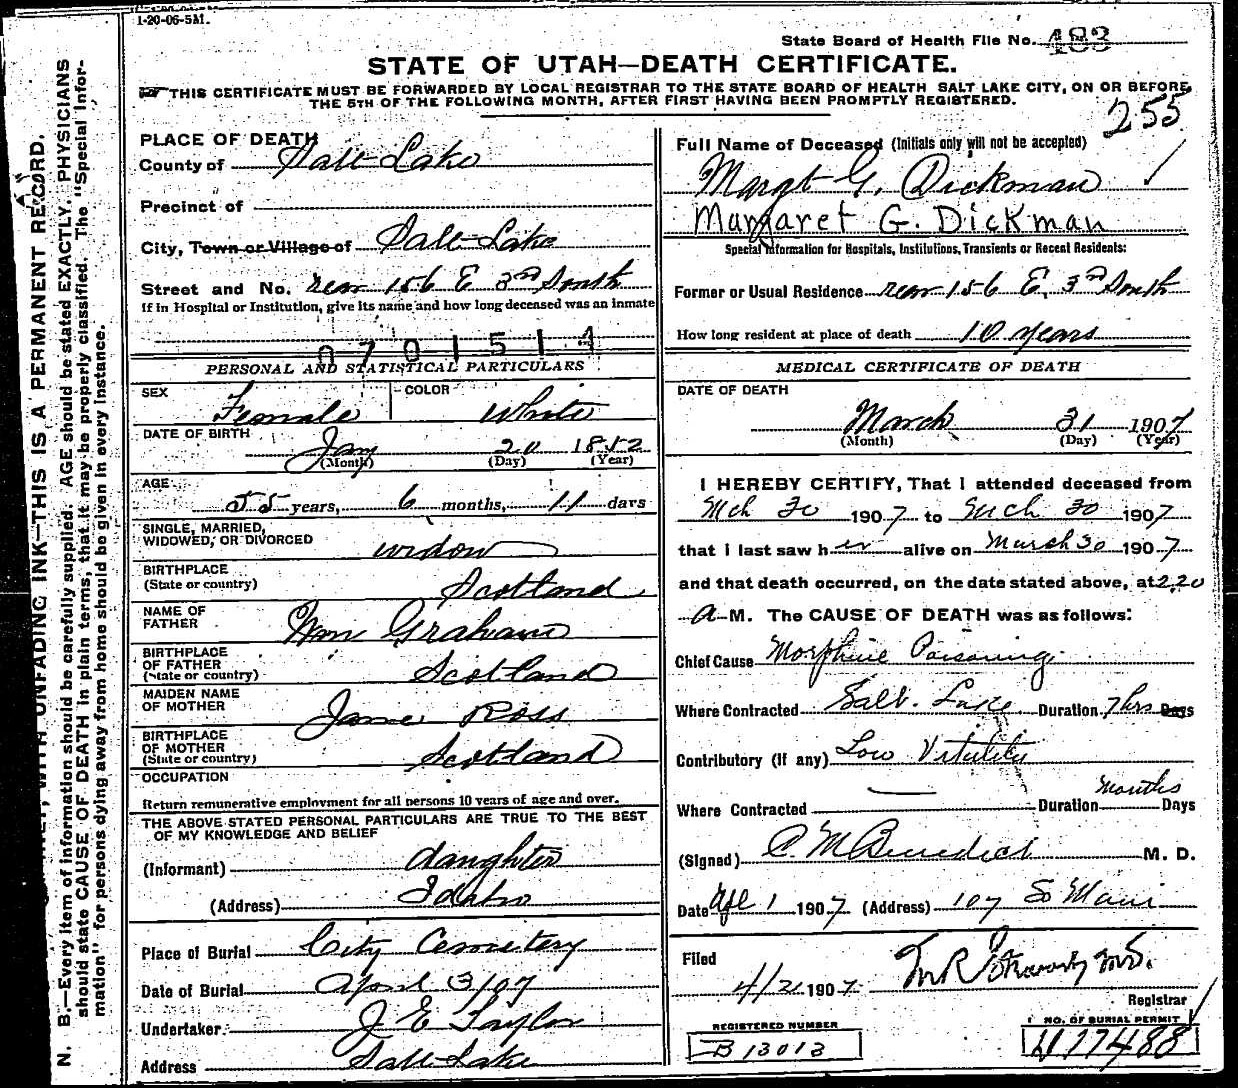 1-20-06-5M.
State Board of Health File No. 483
STATE OF UTAH—DEATH CERTIFICATE.
THIS CERTIFICATE MUST BE FORWARDED BY LOCAL REGISTRAR TO THE STATE BOARD OF HEALTH SALT LAKE CITY, ON OR BEFORE
THE 5TH OF THE FOLLOWING MONTH, AFTER FIRST HAVING BEEN PROMPTLY REGISTERED.
255
PLACE OF DEATH
County of Salt Lake
Precinct of
City, Town or Village of Salt Lake
Street and No. rear 156 E 3rd South
If in Hospital or Institution, give its name and how long deceased was an inmate
0701514
PERSONAL AND STATISTICAL PARTICULARS
SEX Female COLOR White
DATE OF BIRTH Jany 20 1852
(Month) (Day) (Year)
AGE 55 years, 6 months, 11 days
SINGLE, MARRIED,
WIDOWED, OR DIVORCED widow
BIRTHPLACE
(State or country) Scotland
NAME OF
FATHER Wm Graham
BIRTHPLACE
OF FATHER
(State or country) Scotland
MAIDEN NAME
OF MOTHER Jane Ross
BIRTHPLACE
OF MOTHER
(State or country) Scotland
OCCUPATION
Return remunerative employment for all persons 10 years of age and over.
THE ABOVE STATED PERSONAL PARTICULARS ARE TRUE TO THE BEST
OF MY KNOWLEDGE AND BELIEF
(Informant) daughter
(Address) Idaho
Place of Burial City Cemetery
Date of Burial April 3/07
Undertaker J E Taylor
Address Salt Lake
Full Name of Deceased (Initials only will not be accepted)
Margt G. Dickman
Margaret G. Dickman
Special Information for Hospitals, Institutions, Transients or Recent Residents:
Former or Usual Residence rear 156 E. 3rd South
How long resident at place of death 10 years
MEDICAL CERTIFICATE OF DEATH
DATE OF DEATH
March 31 1907
(Month) (Day) (Year)
I HEREBY CERTIFY, That I attended deceased from
Mch 30 1907 to Mch 30 1907
that I last saw her alive on March 30 1907
and that death occurred, on the date stated above, at 2.20
a M. The CAUSE OF DEATH was as follows:
Chief Cause Morphine Poisoning
Where Contracted Salt Lake Duration 7 hrs Days
Contributory (If any) Low Vitality
Where Contracted Duration months Days
(Signed) C M Benedict M. D.
Date Apl 1 1907 (Address) 107 So Main
Filed
4/2 1907
Registrar
REGISTERED NUMBER
B 13013
NO. OF BURIAL PERMIT
17488
WITH UNFADING INK—THIS IS A PERMANENT RECORD.
N. B.—Every item of information should be carefully supplied. AGE should be stated EXACTLY. PHYSICIANS
should state CAUSE OF DEATH in plain terms, that it may be properly classified. The "Special Infor-
mation" for persons dying away from home should be given in every instance.